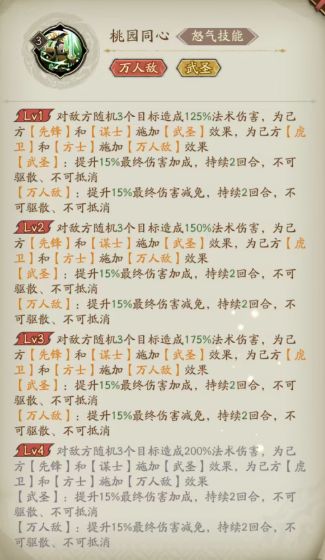 桃园同心 怒气技能
3
万人敌 武圣
Lv1 对敌方随机3个目标造成125%法术伤害，为己
方【先锋】和【谋士】施加【武圣】效果，为己方【虎
卫】和【方士】施加【万人敌】效果
【武圣】：提升15%最终伤害加成，持续2回合，不可
驱散、不可抵消
【万人敌】：提升15%最终伤害减免，持续2回合，不
可驱散、不可抵消
Lv2 对敌方随机3个目标造成150%法术伤害，为己
方【先锋】和【谋士】施加【武圣】效果，为己方【虎
卫】和【方士】施加【万人敌】效果
【武圣】：提升15%最终伤害加成，持续2回合，不可
驱散、不可抵消
【万人敌】：提升15%最终伤害减免，持续2回合，不
可驱散、不可抵消
Lv3 对敌方随机3个目标造成175%法术伤害，为己
方【先锋】和【谋士】施加【武圣】效果，为己方【虎
卫】和【方士】施加【万人敌】效果
【武圣】：提升15%最终伤害加成，持续2回合，不可
驱散、不可抵消
【万人敌】：提升15%最终伤害减免，持续2回合，不
可驱散、不可抵消
Lv4 对敌方随机3个目标造成200%法术伤害，为己
方【先锋】和【谋士】施加【武圣】效果，为己方【虎
卫】和【方士】施加【万人敌】效果
【武圣】：提升15%最终伤害加成，持续2回合，不可
驱散、不可抵消
【万人敌】：提升15%最终伤害减免，持续2回合，不
可驱散、不可抵消